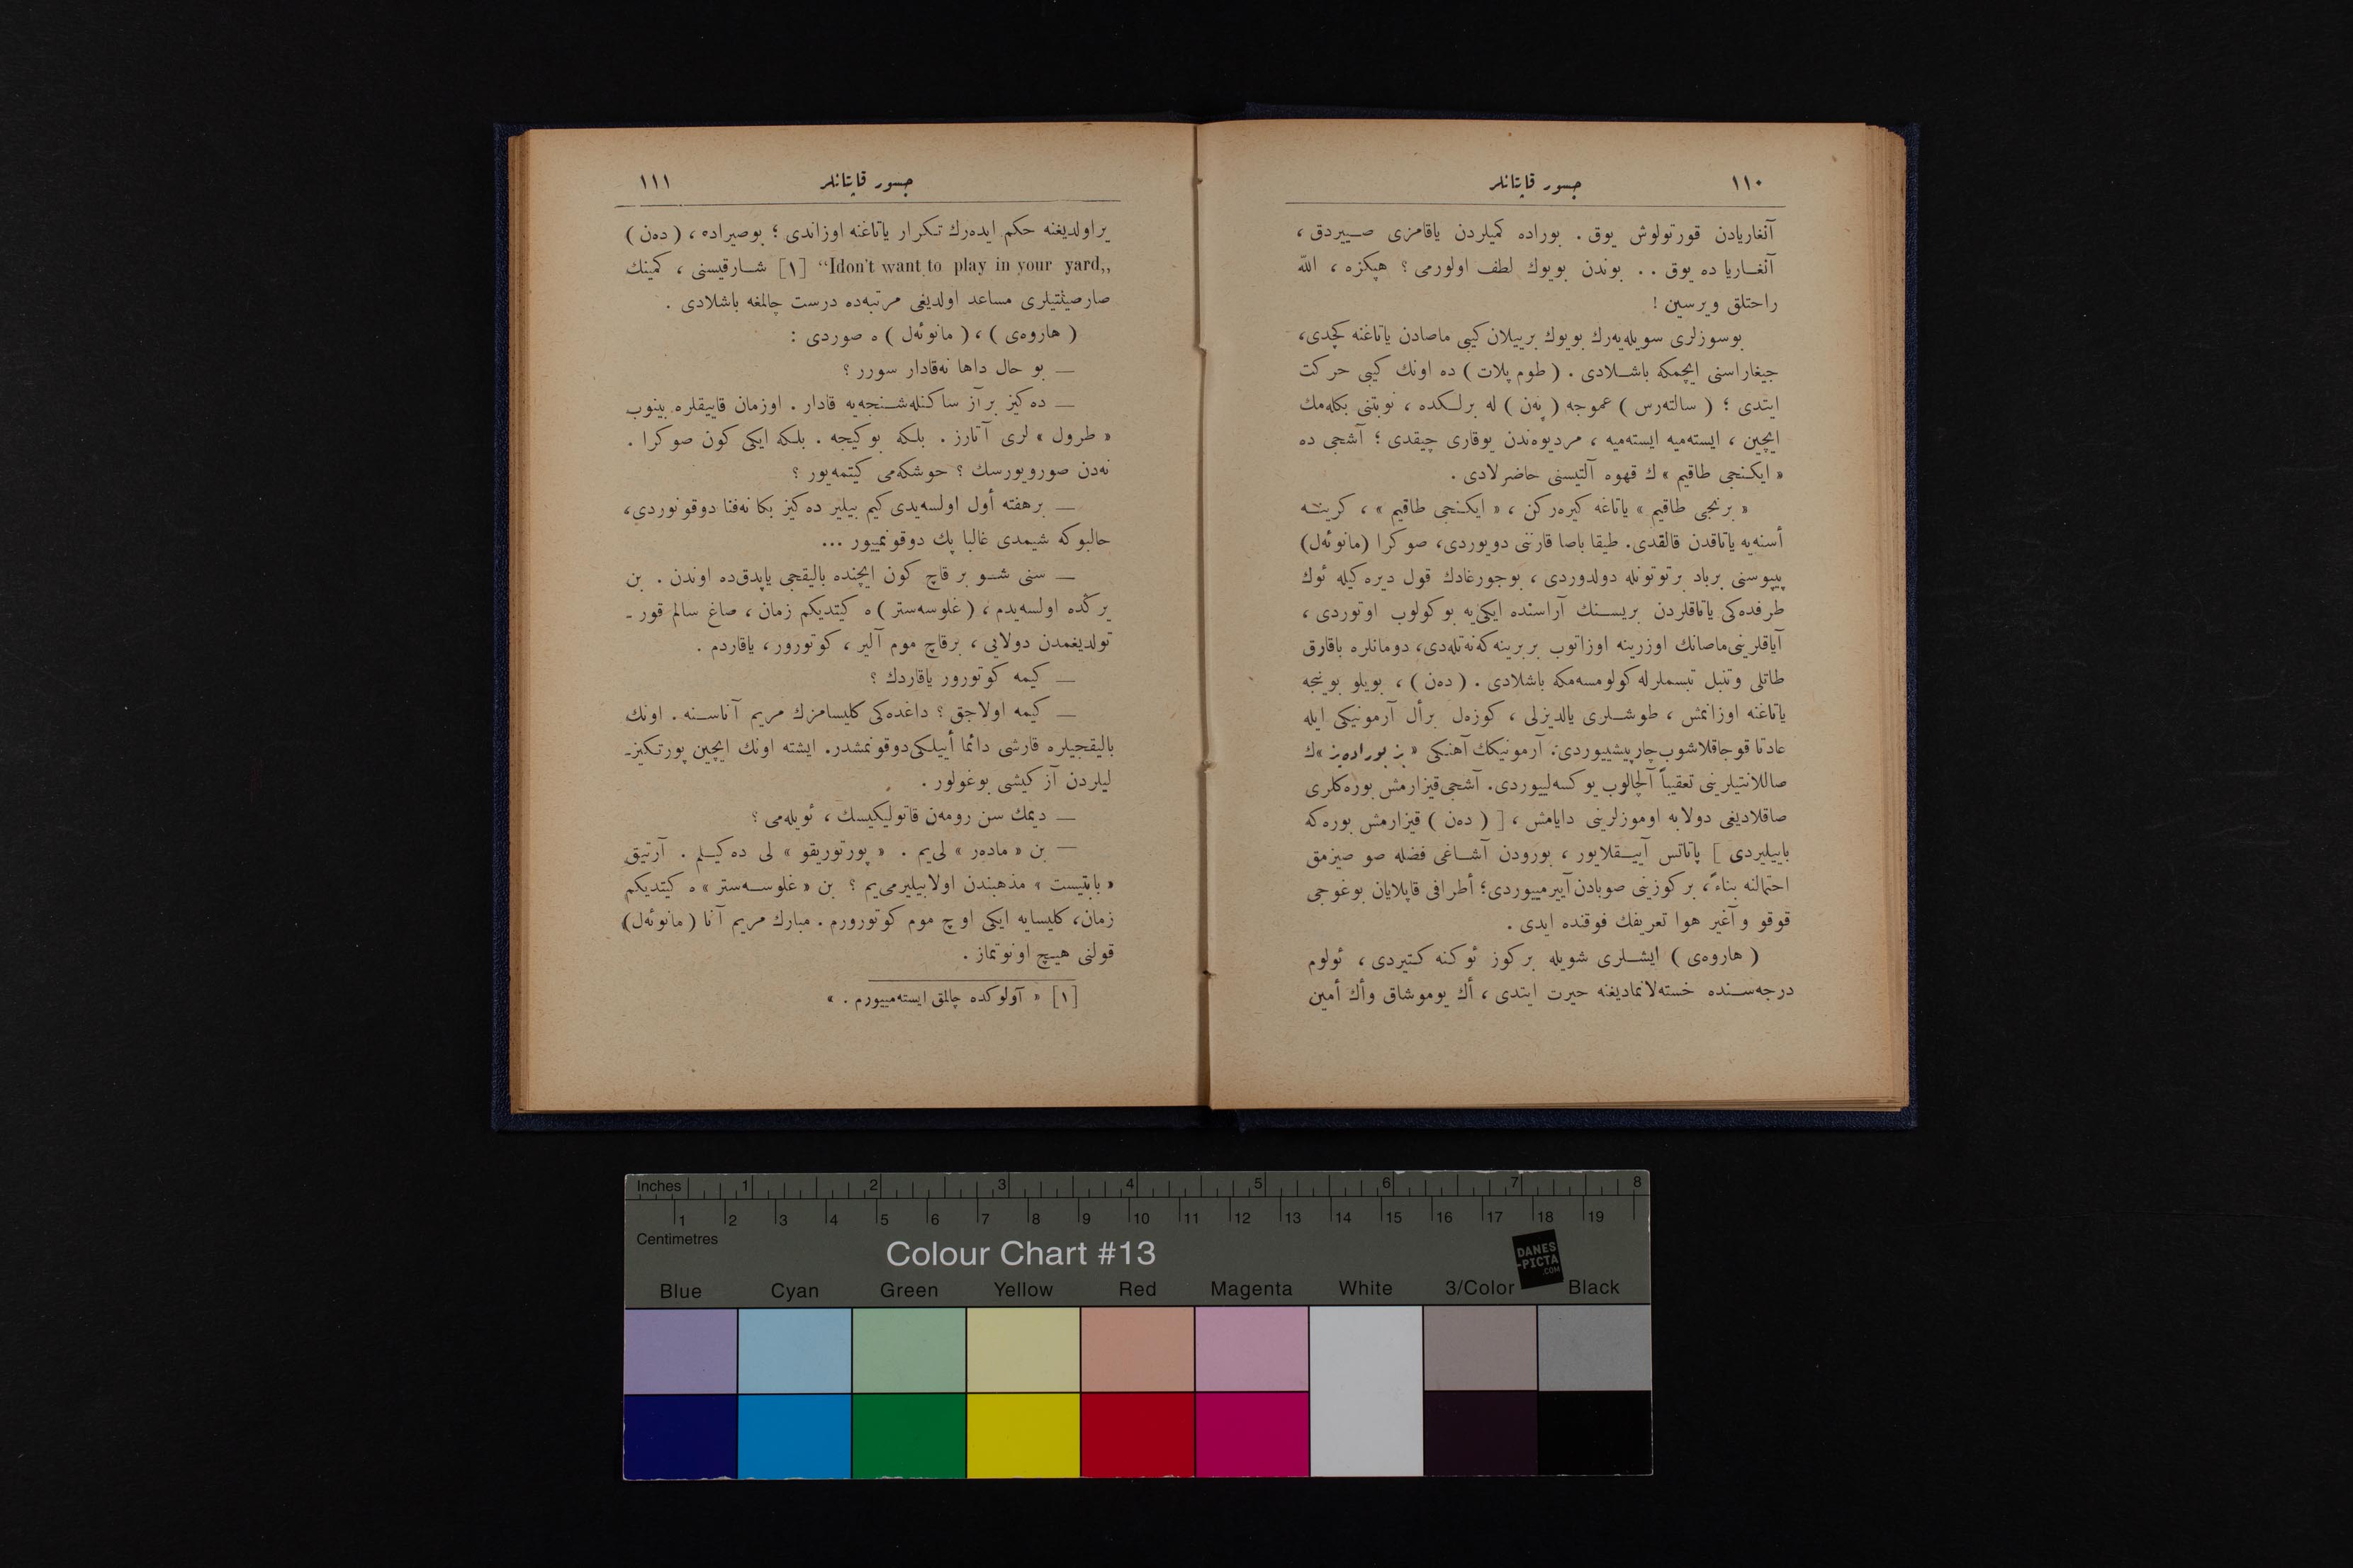 ١١٠
جسور قاپتانلر
آنغاریادن قورتولوش یوق . بوراده کمیلردن یاقامزی صـییردق ،
آنغـاریا ده یوق . . بوندن بویوك لطف اولورمی ؟ هپکزه ، اللّه
راحتلق ویرسین !
بوسوزلری سویله‌یه‌رك بویوك برییلان کیبی ماصادن یاتاغنه کچدی،
جیغاراسنی ایچمکه باشـلادی . ( طوم پلات ) ده اونك کیبی حرکت
ایتدی ؛ ( سالته‌رس ) عموجه ( په‌ن ) له برلـکده ، نوبتنی بکله‌مك
ایچین ، ایسته‌میه ایسته‌میه ، مردیوه‌ندن یوقاری چیقدی ؛ آشجی ده
« ایکـنجی طاقیم » ك قهوه آلتیسنی حاضرلادی .
« برنجی طاقیم » یاتاغه کیره‌رکن ، « ایکـنجی طاقیم » ، کرینـه
أسنه‌یه یاتاقدن قالقدی. طیقا باصا قارننی دویوردی، صوکرا (مانوئه‌ل)
پیپوسنی برباد برتوتونله دولدوردی ، بوجورغادك قول دیره‌کیله ئوك
طرفده‌کی یاتاقلردن بریسـنك آراسنده ایکی‌یه بوکولوب اوتوردی ،
آیاقلرینی‌ماصانك اوزرینه اوزاتوب بربرینه‌که‌نه‌تله‌دی، دومانلره باقارق
طاتلی وتنبل تبسملرله کولومسه‌مکه باشلادی . ( ده‌ن ) ، بویلو بوینجه
یاتاغنه اوزانمش ، طوشـلری یالدیزلی ، کوزه‌ل برأل آرمونیکی ایله
عادتا قوجاقلاشوب‌چارپیشییوردی. آرمونیکك آهنکی « بز بوراده‌یز »ك
صاللانتیلرینی تعقیباً آلچالوب یوکسه‌لییوردی. آشجی‌قیزارمش بوره‌کلری
صاقلادیغی دولابه اوموزلرینی دایامش ، [ ( ده‌ن ) قیزارمش بوره‌که
باییلیردی ] پاتاتس آییـقلایور ، بورودن آشـاغی فضله صو صیزمق
احتمالنه بناءً، برکوزینی صوبادن‌آییرمییوردی؛ أطرافی قاپلایان بوغوجی
قوقو و آغیر هوا تعریفك فوقنده ایدی .
( هاروه‌ی ) ایشـلری شویله برکوز ئوکنه کـتیردی ، ئولوم
درجه‌سـنده خسته‌لانمادیغنه حیرت ایتدی ، أك یوموشاق وأك أمین
جسور قاپتانلر
١١١
یراولدیغنه حکم ایده‌رك تـکرار یاتاغنه اوزاندی ؛ بوصیراده ، ( ده‌ن )
“Idon't want to play in your yard,, [١] شـارقیسنی ، کمینك
صارصینتیلری مساعد اولدیغی مرتبه‌ده درست چالمغه باشلادی .
( هاروه‌ی ) ، ( مانوئه‌ل ) ه صوردی :
— بو حال داها نه‌قادار سورر ؟
— ده‌کیز برآز ساکنله‌شـنجه‌یه قادار . اوزمان قاییقلره بینوب
« طرول » لری آتارز . بلـکه بوکیجه . بلـکه ایکی کون صوکرا .
نه‌دن صورویورسك ؟ خوشکه‌می کیتمه‌یور ؟
— برهفته أول اولسه‌یدی کیم بیلیر ده‌کیز بکا نه‌فنا دوقونوردی،
حالبوکه شیمدی غالبا پك دوقونمییور ...
— سنی شـو بر قاچ کون ایچنده بالیقجی یاپدق‌ده اوندن . بن
یرکده اولسه‌یدم ، ( غلوسه‌ستر ) ه کیتدیکم زمان ، صاغ سالم قور ـ
تولدیغمدن دولایی ، برقاچ موم آلیر ، کوتورور ، یاقاردم .
— کیمه کوتورور یاقاردك ؟
— کیمه اولاجق ؟ داغده‌کی کلیسامزك مریم آناسـنه . اونك
بالیقجیلره قارشی دائما أییلـکی‌دوقونمشدر. ایشته اونك ایچین پورتـکیزـ
لیلردن آز کیشی بوغولور .
— دیمك سن رومه‌ن قاتولیکیسك ، ئویله‌می ؟
— بن « ماده‌ر » لی‌یم . « پورتوریقو » لی ده‌کیـلم . آرتیق
« باپتیست » مذهبندن اولابیلیرمی‌یم ؟ بن « غلوسـه‌ستر » ه کیتدیکم
زمان، کلیسایه ایکی اوچ موم کوتورورم . مبارك مریم آنا ( مانوئه‌ل )
قولنی هیـچ اونوتماز .
[١] « آولوکده چالمق ایسته‌مییورم . »
Inches 1 2 3 4 5 6 7 8
1 2 3 4 5 6 7 8 9 10 11 12 13 14 15 16 17 18 19
Centimetres
Colour Chart #13
DANES
-PICTA
.COM
Blue Cyan Green Yellow Red Magenta White 3/Color Black